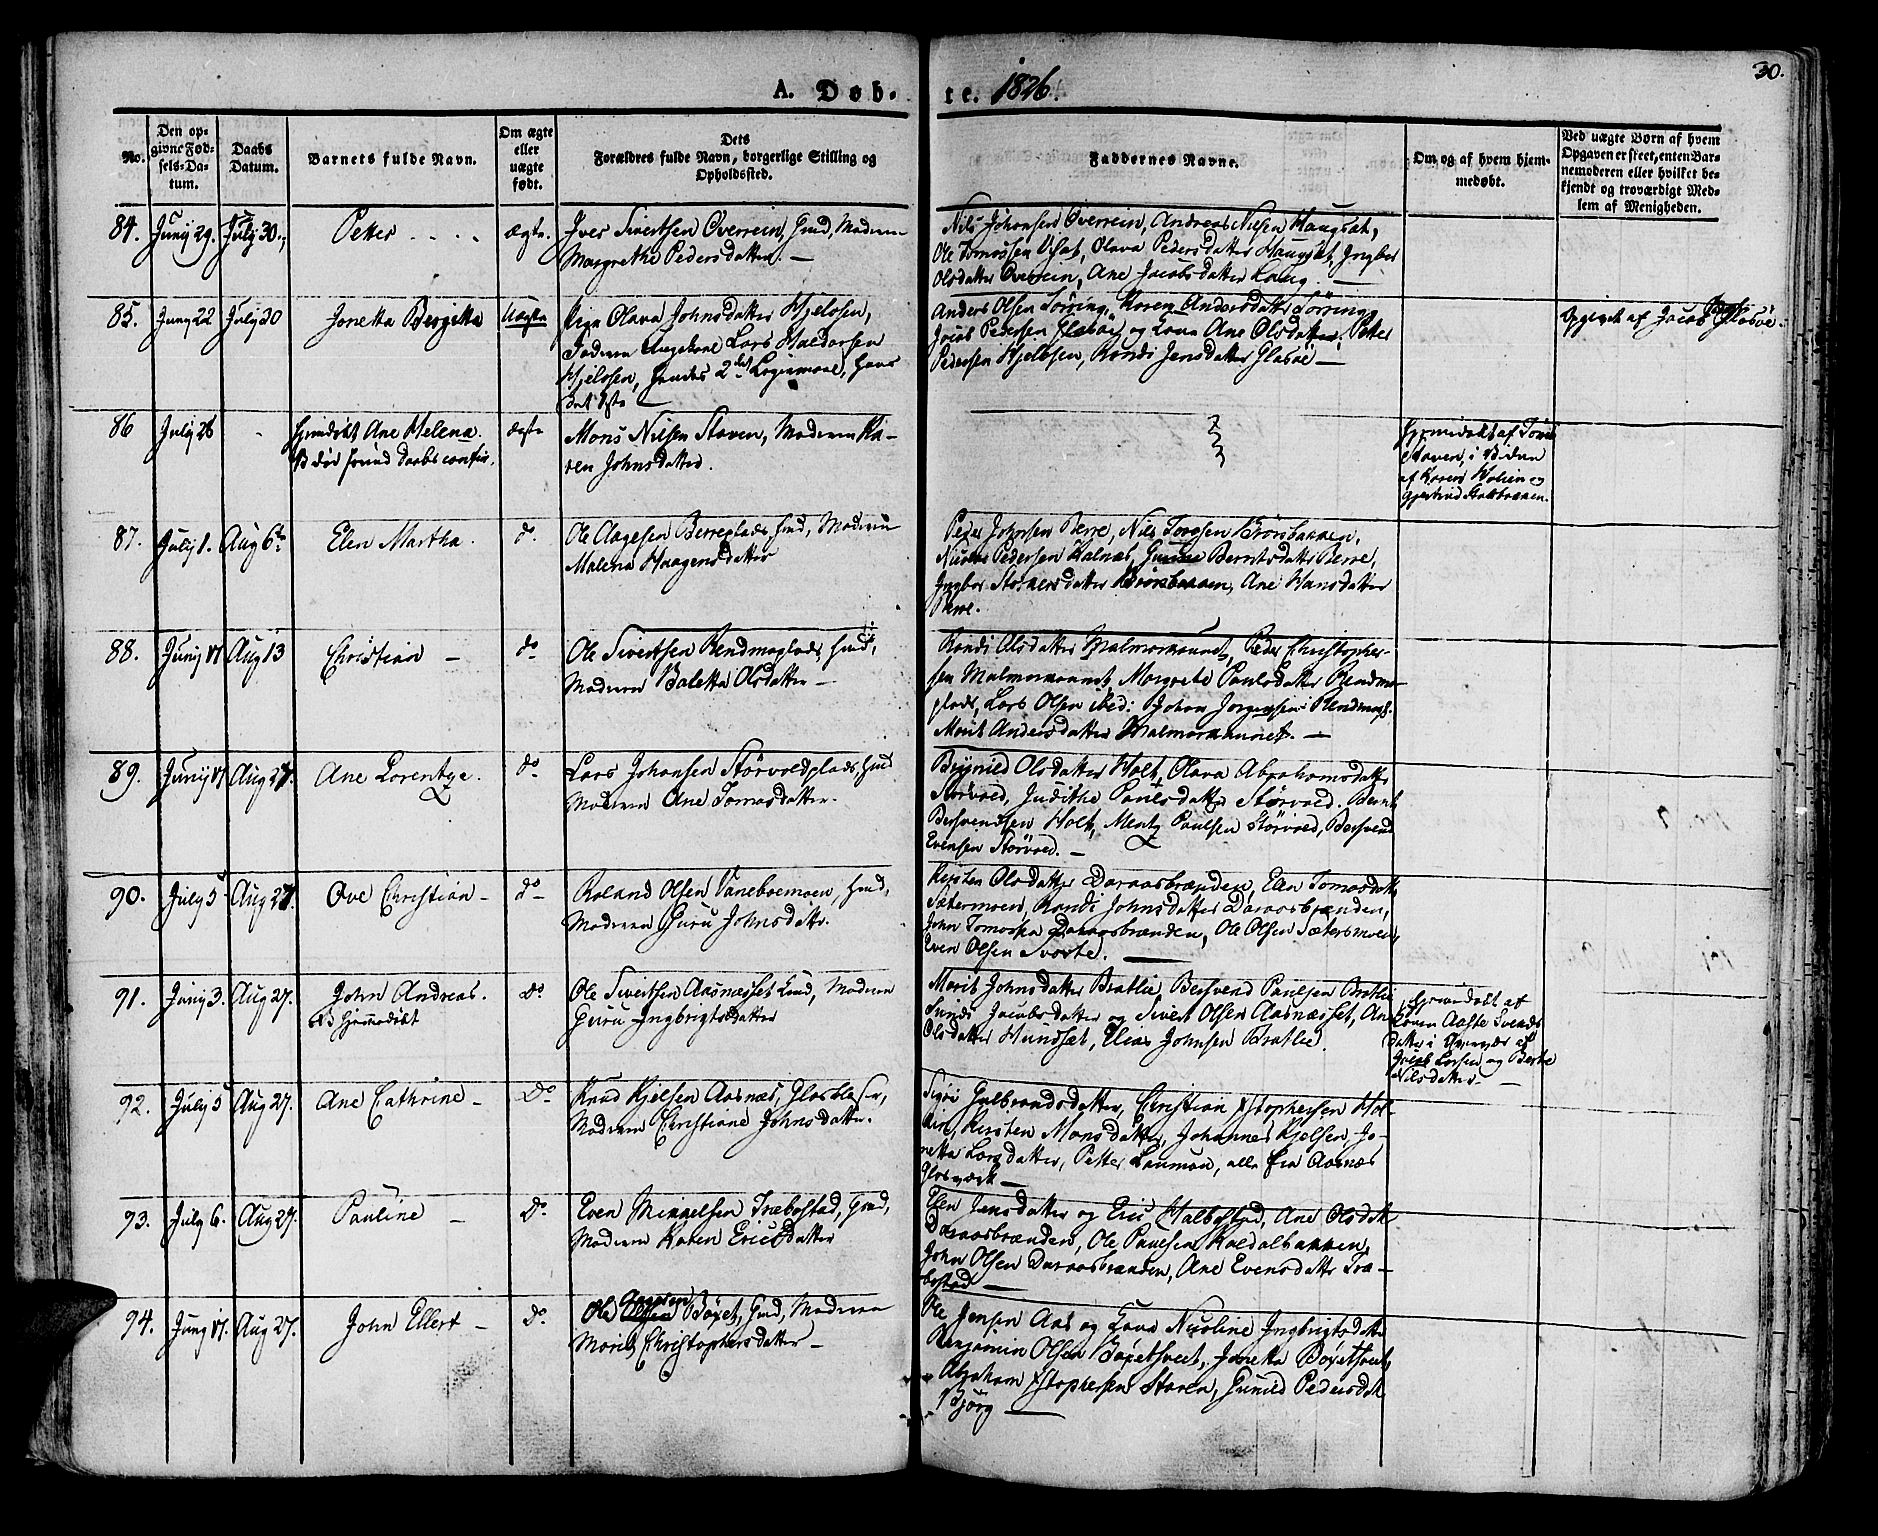 30.
A. Døb-
te. 1826.
No.
Den op-
givne Fød-
sels-Da-
tum.
Daabs
Datum.
Barnets fulde Navn.
Om ægte
eller
uægte
født.
Dets
Forældres fulde Navn, borgerlige Stilling og
Opholdssted.
Faddernes Navne.
Om og af hvem hjem-
medøbt.
Ved uægte Børn af hvem
Opgaven er skeet, enten Bar-
nemoderen eller hvilket be-
kjendt og troværdigt Med-
lem af Menigheden.
84. Juny 29. July 30.
Petter
ægte.
Iver Sivertsen Overrein, Hmd, Moderen
Margrethe Pedersdatter. —
Nils Johansen Overrein, Andreas Nilsen Haugsæt,
Ole Tomassen, Olava Pedersdatter Haugsæt, Ingber
Olsdatter Overrein, Ane Jacobsdatter —
85. Juny 22 July 30
Jonetta Bergitta
Uægte
Pige Olava Johnsdatter Hjelssen,
Faderen Ungekarl Lars Haldorsen
Hjelssen, 2det Leiermaal, hans
første
Anders Olsen Sørring, Karen Andersdatter Sørring
Jacob Pedersen Glasøe, og Kone Ane Olsdatter, Peter
Pedersen Hjelssen, Randi Jensdatter Glasøe —
Opgivet af Jacob Glasøe.
86 July 26
Hjemdøbt Ane Helena.
NB døde forind daabs confir.
ægte
Mons Nilsen Staven, Moderen Ka-
ren Johnsdatter.
Hjemmedøbt af
Staven, i
af Karen Holien og
87. July 1. Aug 6te
Elen Martha.
do.
Ole Aagesen Berreplads, Hmd, Moderen
Malena Haagensdatter
Peder Johnsen Berre, Nils
Pedersen Halnæs, Berntsdatter Berre,
Ingber, Ane Hansdatter
Berre.
88. Juny 17 Aug 13
Christian —
do
Ole Sivertsen Rendmoplads, Hmd,
Moderen Baletta Olsdatter —
Randi Olsdatter Malmomannet, Peder Christopher-
sen Malmomannet, Margrete Paulsdatter Rendmo-
plads, Lars Olsen ibid: Johan Jørgensen Rendmopl.
Marit Andersdatter Malmomannet. —
89. Juny 17 Aug 27.
Ane Lorentze.
do
Lars Johansen Størvoldplads, Hmd
Moderen Ane Tomasdatter.
Brynild Olsdatter Holt, Olava Abrahamsdatter
Størvold, Judithe Paulsdatter Størvold. Bernt
Bersvendsen Holt, Mentz Paulsen Størvold, Bersvend
Evensen Størvold. —
90. July 5 Aug 27.
Ove Christian —
do
Roland Olsen Vaneboemoen, Hmd,
Moderen Guru Johnsdatter.
Kirsten Olsdatter Daraasbrænden, Elen Tomasdatter
Sætermoen, Randi Johnsdatter Daraasbrænden,
John Tomassen Daraasbrænden, Ole Olsen Sætersmoen,
Iver Olsen Svarte. —
91. Juny 3. Aug 27.
John Andreas.
NB hjemmedøbt
do
Ole Sivertsen Aasnæsset Hmd, Moderen
Guru Ingbrigtsdatter
Marit Johnsdatter Bratlie, Bersvend Paulsen Bratlie
Jacobsdatter og Sivert Olsen Aasnæsset, Ane
Olsdatter Hundsæt, Elias Johnsen Bratlie.
Hjemmedøbt af
Konen Aaste Svends
datter i af
Jacob Larsen og Berthe
Nilsdatter —
92. July 5 Aug 27.
Ane Cathrine —
Do
Knud Kjelsen Aasnæs, Glasblæser,
Moderen Christiane Johnsdatter.
Siri Gulbrandsdatter, Christian Xstophersen Hol-
Kirsten Monsdatter, Johannes Kjelsen, Jo-
netta Larsdatter, Petter Lauman, alle fra Aasnæs
Glasværk —
93. July 6. Aug 27.
Pauline —
Do
Even Mikkelsen Træbostad, Gmd,
Moderen Karen Ericsdatter
Elen Jensdatter og Eric Halbostad, Ane Olsdatter
Daraasbrænden, Ole Paulsen Kaldalbakken,
John Olsen Daraasbrænden, Ane Evensdatter Træ-
bostad —
94. Juny 17. Aug 27.
John Ellert —
Do
Ole Bøxet, Gmd, Moderen
Marit Christophersdatter —
Ole Jensen Aas og Kone Nicoline Ingbrigtsdatter
Benjamin Olsen Bøxetsveet, Jonetta Bøxetsveet,
Abraham Xstophersen Staren, Gunild Pedersdatter
Bjørg —